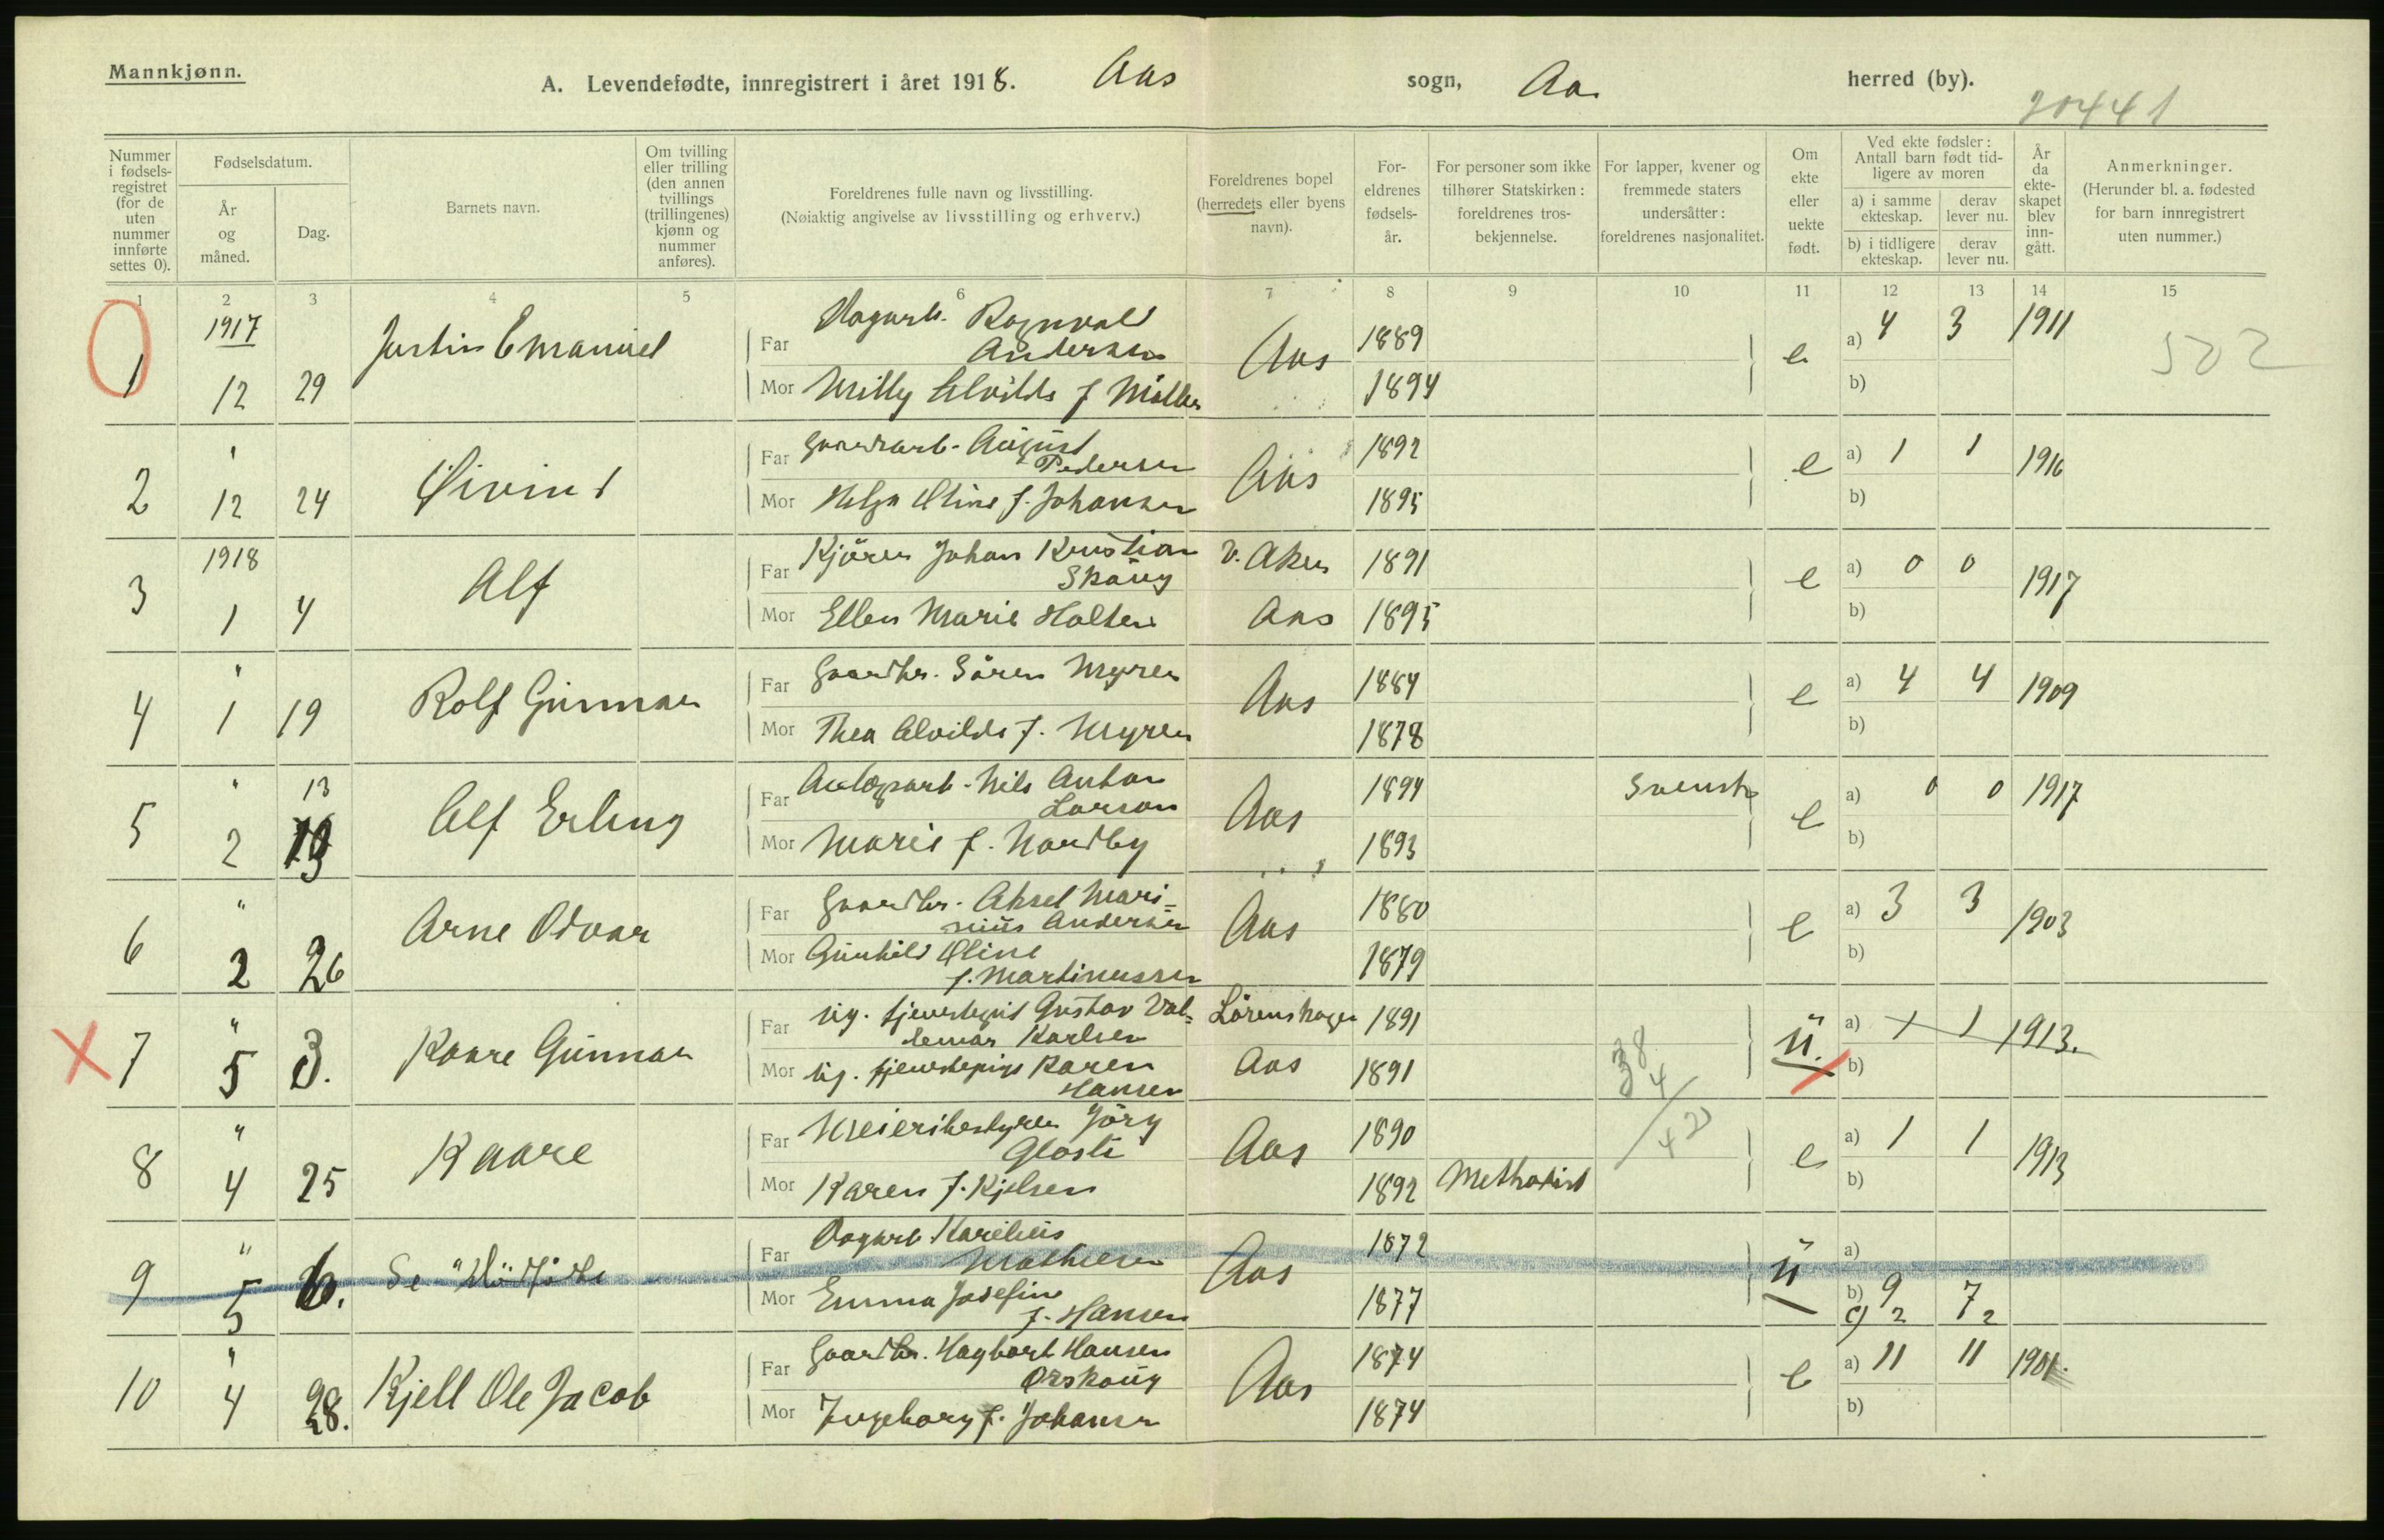 Mannkjønn.
A. Levendefødte, innregistrert i året 1918. Aas sogn, Aas herred (by).
20441
Nummer i fødsels-registret (for de uten nummer innførte settes 0).
Fødselsdatum.
År og måned.
Dag.
Barnets navn.
Om tvilling eller trilling (den annen tvillings (trillingenes) kjønn og nummer anføres).
Foreldrenes fulle navn og livsstilling.
(Nøiaktig angivelse av livsstilling og erhverv.)
Foreldrenes bopel (herredets eller byens navn).
For-eldrenes fødsels-år.
For personer som ikke tilhører Statskirken: foreldrenes tros-bekjennelse.
For lapper, kvener og fremmede staters undersåtter: foreldrenes nasjonalitet.
Om ekte eller uekte født.
Ved ekte fødsler: Antall barn født tid-ligere av moren
a) i samme ekteskap. derav lever nu.
b) i tidligere ekteskap. derav lever nu.
År da ekte-skapet blev inn-gått.
Anmerkninger.
(Herunder bl. a. fødested for barn innregistrert uten nummer.)
1 2 3 4 5 6 7 8 9 10 11 12 13 14 15
1 1917 12 29 Justin Emanuel
Far Dagarb. Ragnvald Andersen Aas 1889 e a) 4 3 1911
Mor Milly Alvilde f Möller 1894 b)
502
2 " 12 24 Øivind
Far Gaardarb. August Pedersen Aas 1892 e a) 1 1 1916
Mor Helga Oline f. Johansen 1895 b)
3 1918 1 4 Alf
Far Kjörer Johan Kristian Skaug V. Aker 1891 e a) 0 0 1917
Mor Ellen Marie Holter Aas 1895 b)
4 " 1 19 Rolf Gunnar
Far Gaardbr. Sören Myren Aas 1884 e a) 4 4 1909
Mor Thea Alvilde f. Myren 1878 b)
5 " 2 13 Alf Erling
Far Nils Anton Larson Aas 1894 Svensk e a) 0 0 1917
Mor Marie f. Nordby 1893 b)
6 " 2 26 Arne Odvar
Far Gaardbr. Aksel Mari=nius Andersen Aas 1880 e a) 3 3 1903
Mor Gunhild Oline f. Martinussen 1879 b)
7 " 5 3. Kaare Gunnar
Far Ug. Gustav Val=demar Karlsen Lörenskogen 1891 u. a) 1 1 1913.
Mor Ug. tjenestepige Karen Hansen Aas 1891 b)
38 4 / 42
8 " 4 25 Kaare
Far Meieribestyrer Jörg Aas 1890 e a) 1 1 1913
Mor Karen f. Kjelsen 1892 Methodist b)
9 " 5 6. Se "Dödfödte
Far Dagarb. Karelius Mathisen Aas 1872 u a)
Mor Emma Josefine f. Hansen 1877 b) 9 7
c) 2 2
10 " 4 28. Kjell Ole Jacob
Far Gaardbr. Hagbart Hansen Orskaug Aas 1874 e a) 11 11 1901.
Mor Ingeborg f. Johansen 1874 b)